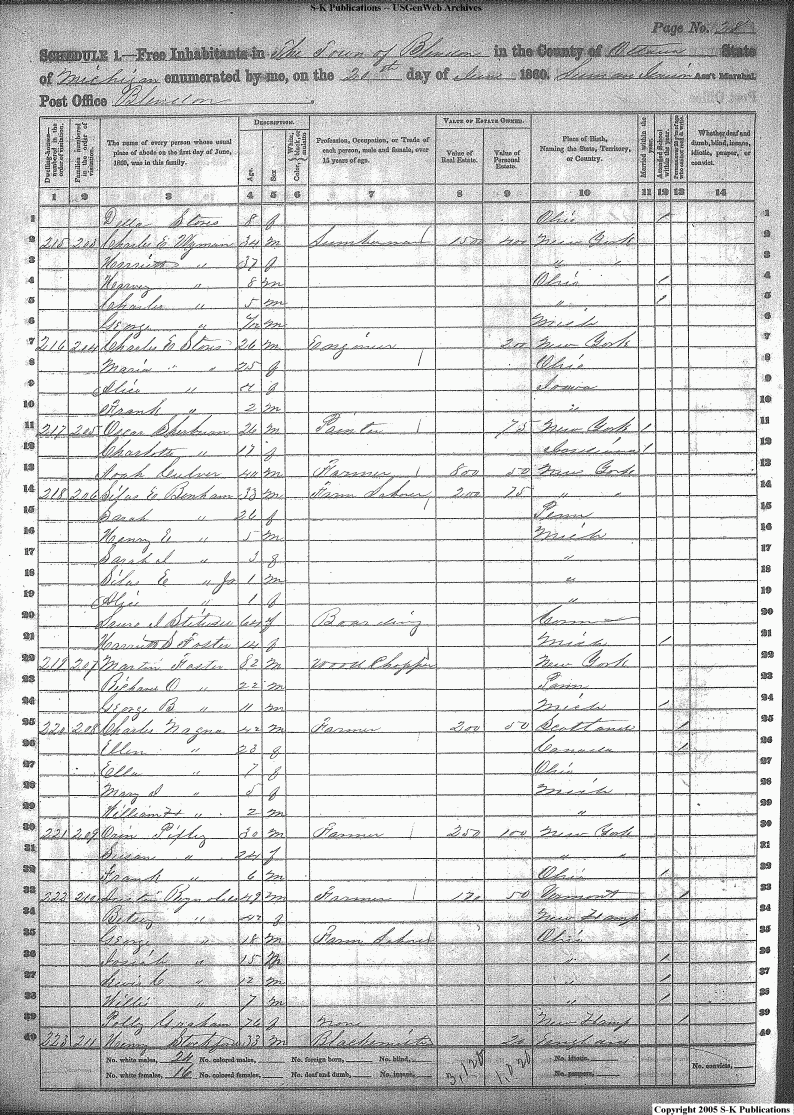 S-K Publications -- USGenWeb Archives
Page No.
SCHEDULE 1.—Free Inhabitants in The Town of Blendon in the County of Ottawa State
of Michigan enumerated by me, on the 20th day of June 1860. Ass't Marshal.
Post Office Blendon.
Dwelling-houses—numbered in the order of visitation.
Families numbered in the order of visitation.
The name of every person whose usual place of abode on the first day of June, 1860, was in this family.
DESCRIPTION.
Age.
Sex
Color, White, black, or mulatto
Profession, Occupation, or Trade of each person, male and female, over 15 years of age.
VALUE OF ESTATE OWNED.
Value of Real Estate.
Value of Personal Estate.
Place of Birth, Naming the State, Territory, or Country.
Married within the year.
Attended School within the year.
Whether deaf and dumb, blind, insane, idiotic, pauper, or convict.
1 2 3 4 5 6 7 8 9 10 11 12 13 14
1 Della Stores 8 f Ohio / 1
2 215 203 Charles E Wyman 34 m Lumberman 1500 400 New York 2
3 Harriett " 37 f " " 3
4 Harvey " 8 m Ohio / 4
5 Charles " 5 m " / 5
6 George " m Mich 6
7 216 204 Charles E Stores 26 m Engineer 200 New York 7
8 Maria " " 25 f Ohio 8
9 Alice " 4 f Iowa 9
10 Frank " 2 m " 10
11 217 205 Oscar 26 m Painter 75 New York / 11
12 Charlotte " 17 f / 12
13 Noah Culver 40 m Farmer 800 50 New York 13
14 218 206 Silas E Benham 33 m Farm Labour 200 75 " " 14
15 Sarah " 26 f Penn 15
16 Henry E " 5 m Mich 16
17 Sarah " 3 f " 17
18 Silas E " Jr 1 m " 18
19 Alice " 1 f " 19
20 Boarding Conn 20
21 Harriett S Foster 14 f Mich / 21
22 219 207 Martin Foster 52 m Wood Chopper New York 22
23 Richard O " 22 m Penn 23
24 George B " 11 m Mich / 24
25 220 208 Charles Magna 42 m Farmer 200 50 Scotland / 25
26 Ellen " 23 f Canada / 26
27 Ella " 7 f Ohio 27
28 Mary " 5 f Mich 28
29 William H " 2 m " 29
30 221 209 Orin 30 m Farmer 250 100 New York 30
31 Susan " 24 f " " 31
32 Frank " 6 m Ohio / 32
33 222 210 49 m Farmer 170 50 Vermont / 33
34 Betsey " 42 f New Hamp 34
35 George " 18 m Farm Labour Ohio 35
36 Josiah " 15 m " / 36
37 Lewis C " 12 m " / 37
38 Willis " 7 m " / 38
39 Polly 76 f None New Hamp / 39
40 223 211 Henry Stockton 33 m Blacksmith 20 England 40
No. white males, 24 No. colored males, No. foreign born, No. blind, No. idiotic,
No. white females, 16 No. colored females, No. deaf and dumb, No. insane, No. paupers, No. convicts,
3,120 1,020
Copyright 2005 S-K Publications